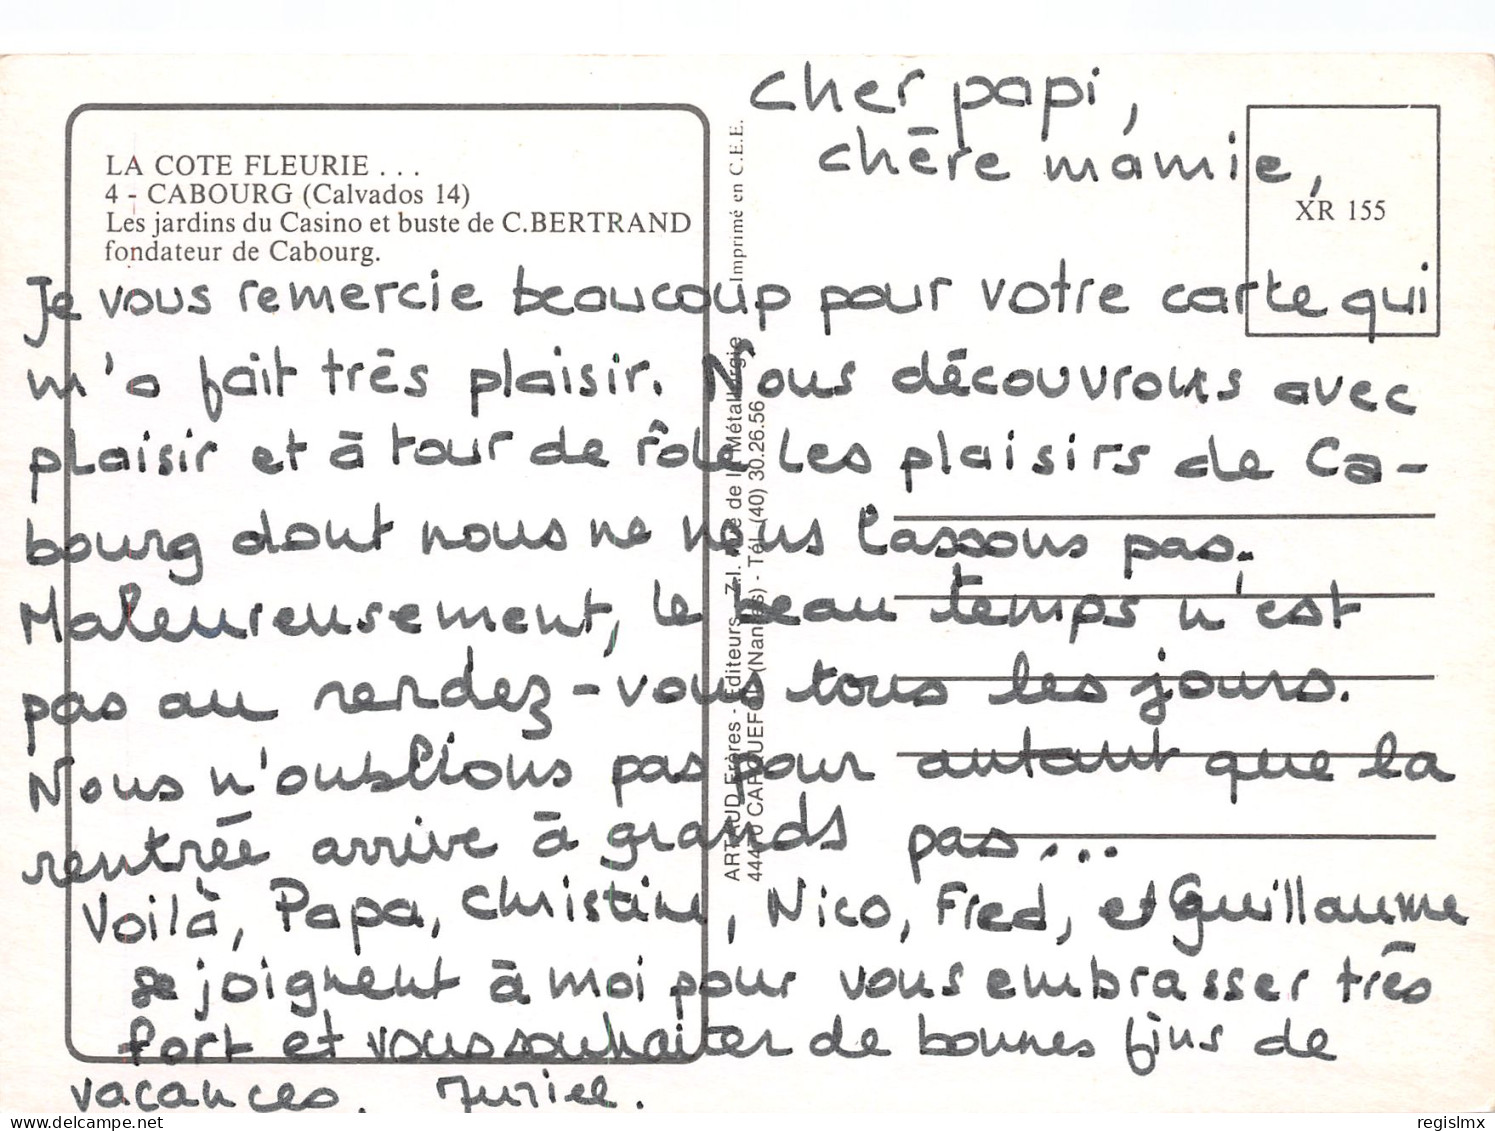 cher papi,
chère mamie,
LA COTE FLEURIE . . .
4 - CABOURG (Calvados 14)
Les jardins du Casino et buste de C.BERTRAND
fondateur de Cabourg.
XR 155
Je vous remercie beaucoup pour votre carte qui
m'a fait très plaisir. Nous découvrons avec
plaisir et à tour de rôle les plaisirs de Ca-
bourg dont nous ne nous lassons pas;
Maleureusement, le beau temps n'est
pas au rendez-vous tous les jours.
Nous n'oublions pas pour autant que la
rentrée arrive à grands pas...
Voilà, Papa, Christine, Nico, Fred, et Guillaume
se joignent à moi pour vous embrasser très
fort et vous souhaiter de bonnes fins de
vacances. Muriel.
ARTAUD Frères - Editeurs - Z.I. Rue de la Métallurgie Imprimé en C.E.E.
44470 CARQUEFOU (Nantes) - Tél. (40) 30.26.56
regislmx
delcampe.net